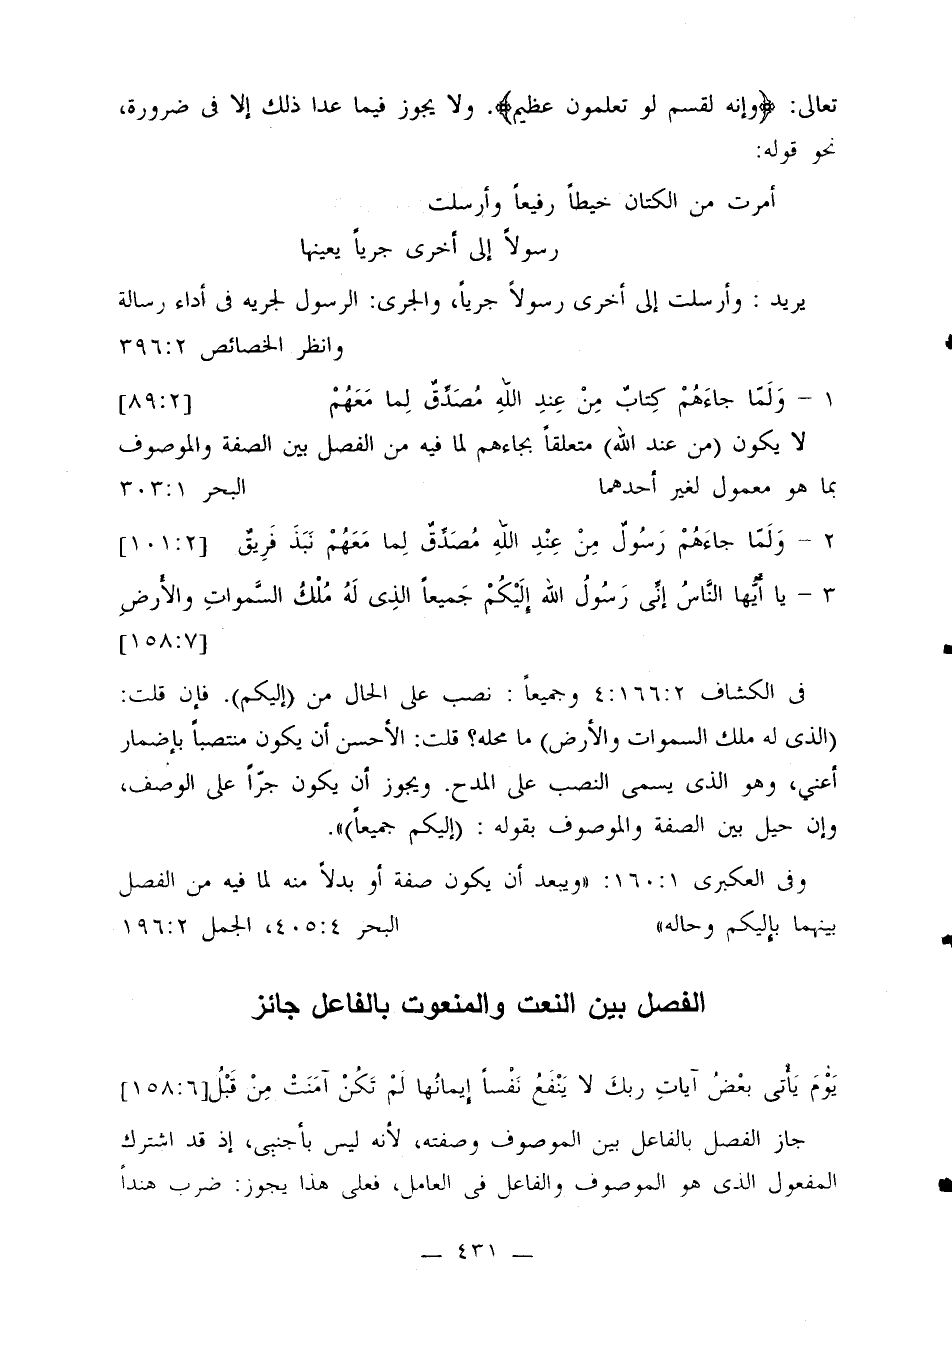 تعالى: ﴿وإنه لقسم لو تعلمون عظيم﴾. ولا يجوز فيما عدا ذلك إلا فى ضرورة،
نحو قوله:
أمرت من الكتان خيطاً رفيعاً وأرسلت
رسولاً إلى أخرى جرياً يعينها
يريد : وأرسلت إلى أخرى رسولاً جرياً، والجرى: الرسول لجريه فى أداء رسالة
وانظر الخصائص ٣٩٦:٢
١ - وَلَمَّا جاءَهُمْ كِتابٌ مِنْ عِندِ اللّهِ مُصَدِّقٌ لِما مَعَهُمْ [٨٩:٢]
لا يكون (من عند الله) متعلقاً بجاءهم لما فيه من الفصل بين الصفة والموصوف
بما هو معمول لغير أحدهما البحر ٣٠٣:١
٢ - وَلَمَّا جاءَهُمْ رَسُولٌ مِنْ عِنْدِ اللّهِ مُصَدِّقٌ لِما مَعَهُمْ نَبَذَ فَرِيقٌ [١٠١:٢]
٣ - يا أَيُّها النَّاسُ إنِّى رَسُولُ الله إلَيْكُمْ جَميعاً الذِى لَهُ مُلْكُ السَّمواتِ والأَرضِ
[١٥٨:٧]
فى الكشاف ٤:١٦٦:٢ وجميعاً : نصب على الحال من (إليكم). فإن قلت:
(الذى له ملك السموات والأرض) ما محله؟ قلت: الأحسن أن يكون منتصباً بإضمار
أعني، وهو الذى يسمى النصب على المدح. ويجوز أن يكون جرّاً على الوصف،
وإن حيل بين الصفة والموصوف بقوله : (إليكم جميعاً)».
وفى العكبرى ١٦٠:١: «ويبعد أن يكون صفة أو بدلاً منه لما فيه من الفصل
بينهما بإليكم وحاله» البحر ٤٠٥:٤، الجمل ١٩٦:٢
الفصل بين النعت والمنعوت بالفاعل جائز
يَوْمَ يَأْتى بعْضُ آياتِ ربكَ لا يَنْفَعُ نَفْساً إيمانُها لَمْ تَكُنْ آمَنَتْ مِنْ قَبْلُ[١٥٨:٦]
جاز الفصل بالفاعل بين الموصوف وصفته، لأنه ليس بأجنبى، إذ قد اشترك
المفعول الذى هو الموصوف والفاعل فى العامل، فعلى هذا يجوز: ضرب هنداً
— ٤٣١ —